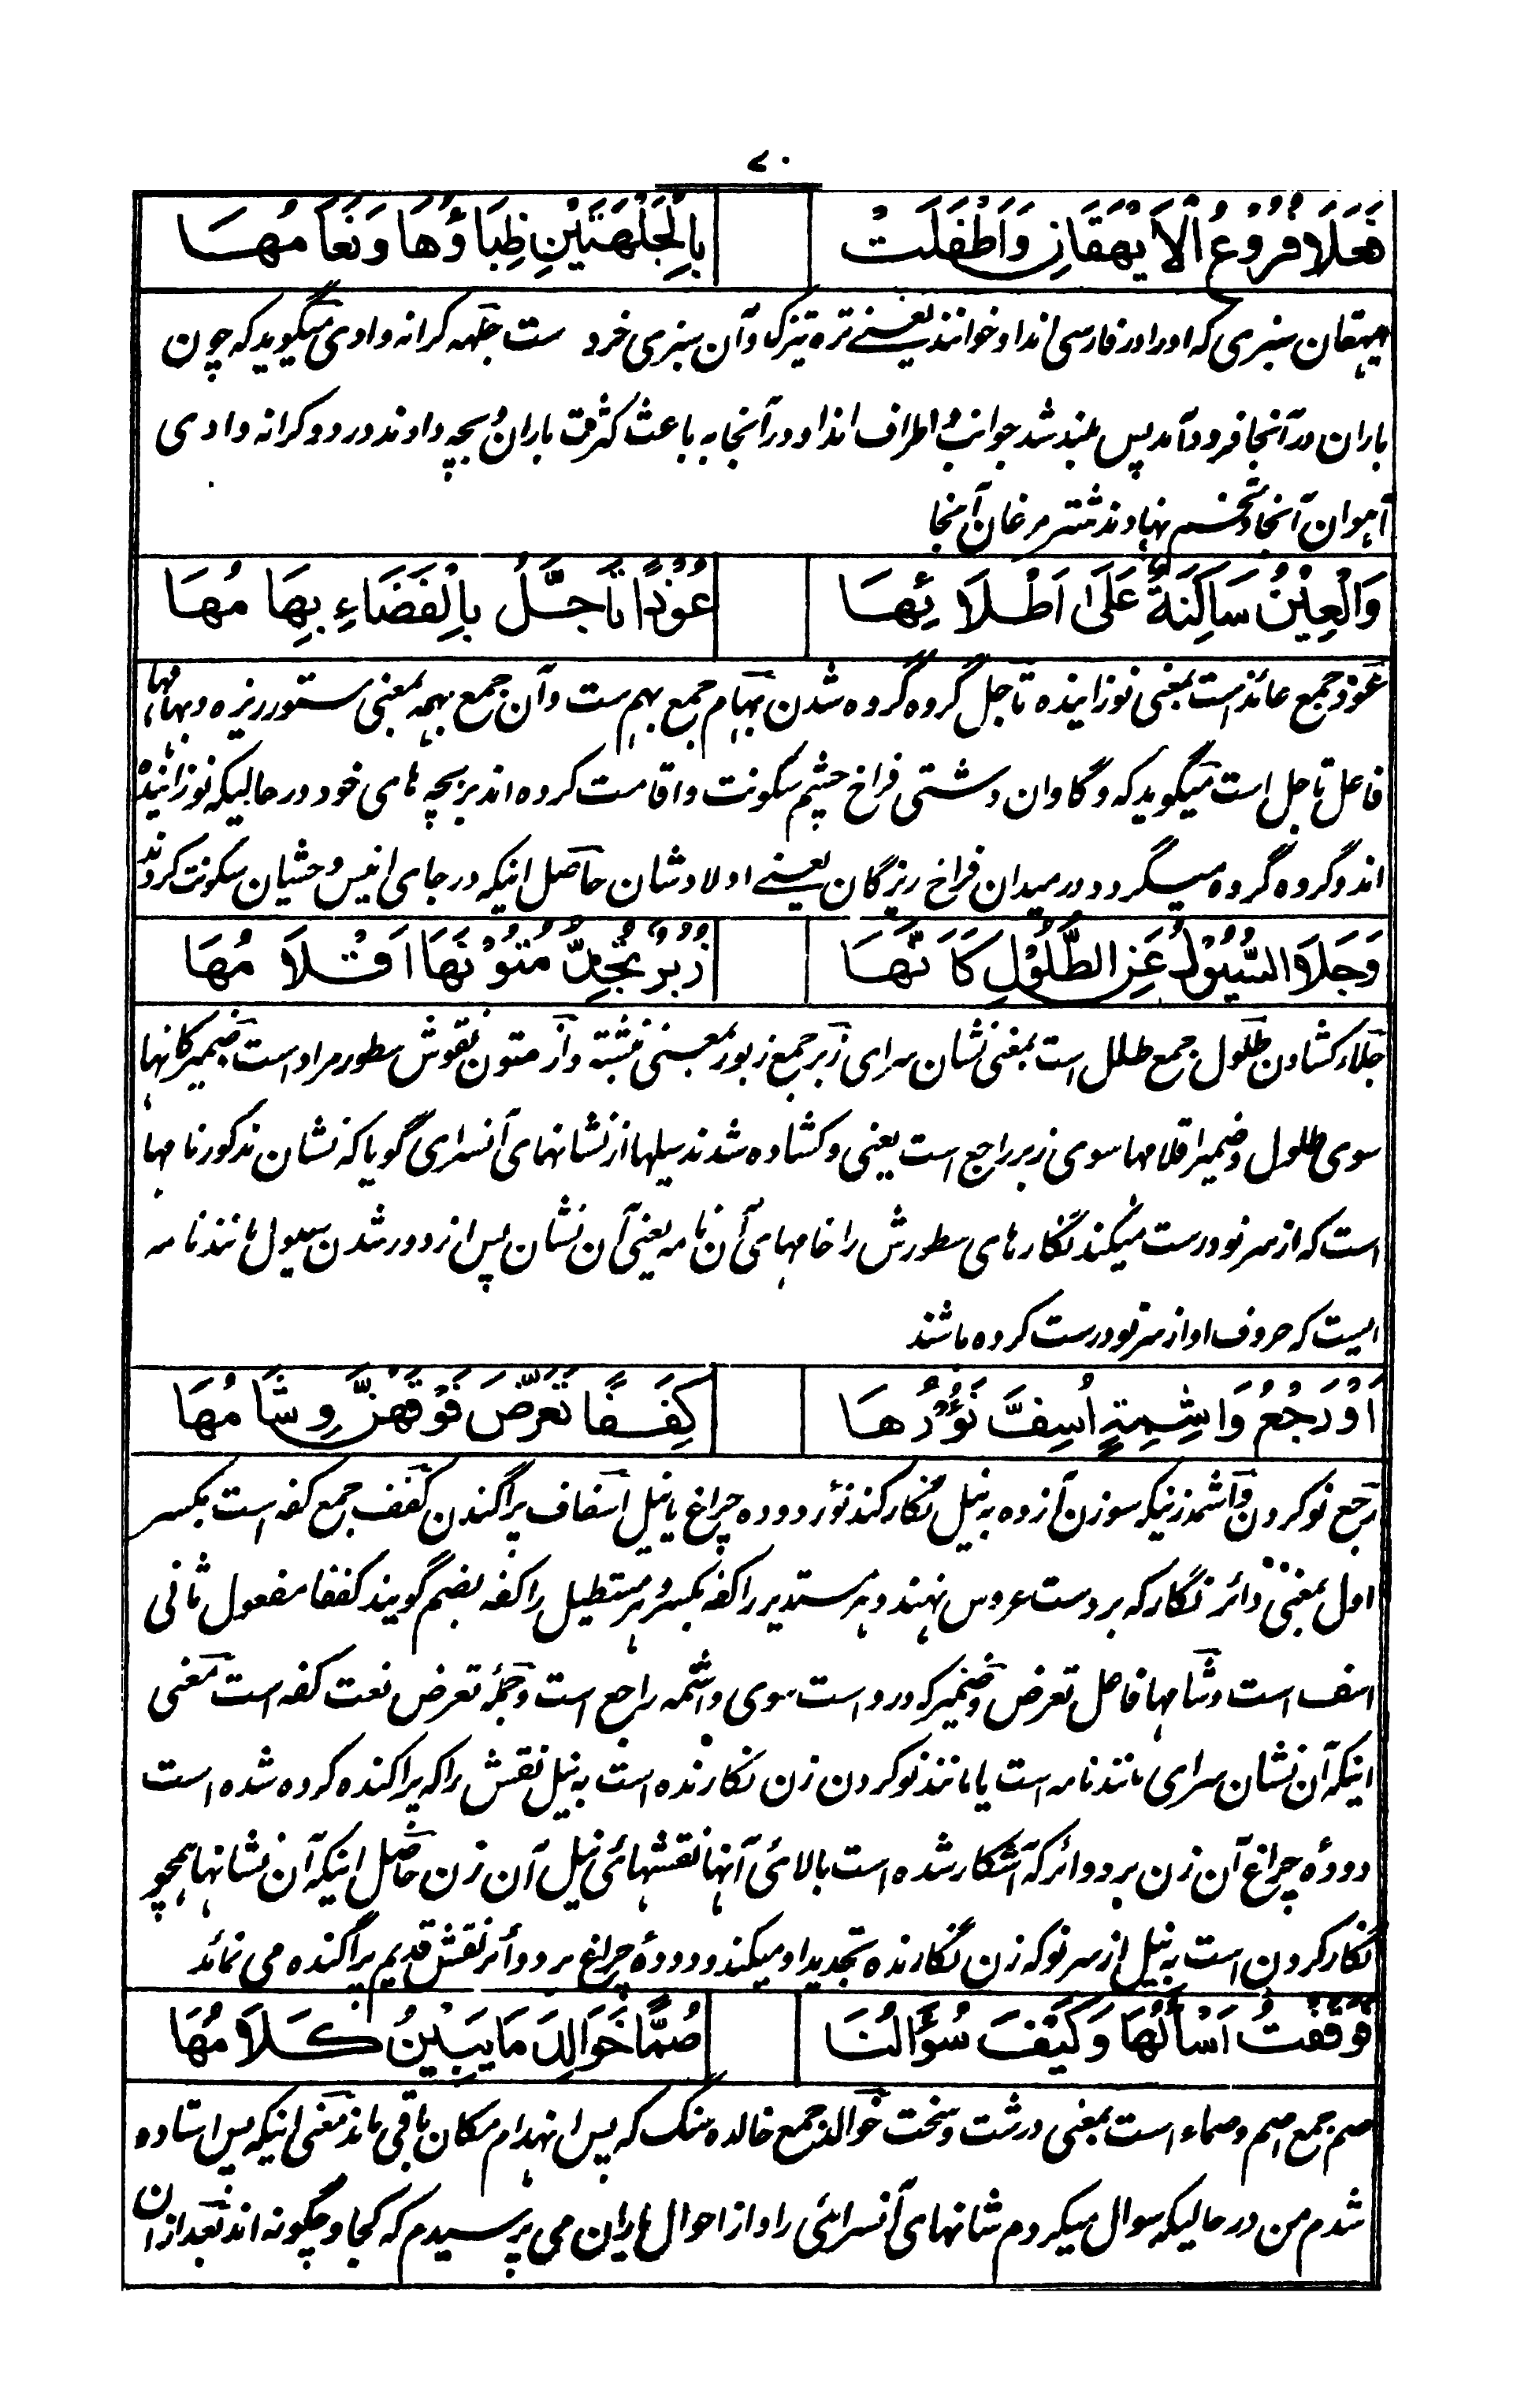 ۷۰
فَعَلَا فُرُوْعُ الْاَيْهَقَانِ وَاَطْفَلَتْ بِالْجَلْهَتَيْنِ ظِبَاؤُهَا وَنَعَامُهَا
ایهقان سبزی که او را در فارسی انداو خوانند یعنے تره تیزک و آن سبزی خرد ست جلهه کرانه وادی میگوید که چون
باران در آنجا فرود آمد پس بلند شد جوانب و اطراف انداو در آنجا به باعث کثرت باران و بچه دادند در دو کرانه وادی
آهوان آنجا و تخم نهادند شتر مرغان آنجا
وَالْعِيْنُ سَاكِنَةٌ عَلٰى اَطْلَائِهَا عُوْذًا تَاَجَّلُ بِالْفَضَاءِ بِهَامُهَا
عوذ جمع عائذ است بمعنی نوزاینده تاجل گروه گروه شدن بهام جمع بهم ست و آن جمع بهمه بمعنی ستور ریزه و بهامها
فاعل تاجل است میگوید که و گاوان دشتی فراخ چشم سکونت و اقامت کرده اند بر بچه های خود در حالیکه نوزاینده
اند و گروه گروه میگردد در میدان فراخ ریزگان یعنے اولاد شان حاصل اینکه در جای انیس وحشیان سکونت کردند
وَجَلَا السُّيُوْلُ عَنِ الطُّلُوْلِ كَاَنَّهَا زُبُرٌ تُجِدُّ مُتُوْنَهَا اَقْلَامُهَا
جلاء کشادن طلول جمع طلل است بمعنی نشان سرای زبر جمع زبور بمعنی نبشته و از متون نقوش سطور مراد است ضمیر کانها
سوی طلول و ضمیر اقلامها سوی زبر راجع است یعنی و کشاده شدند سیلها از نشانهای آنسرای گویا که نشان مذکور نامها
است که از سر نو درست میکند نگارهای سطورش را خامهای آن نامه یعنی آن نشان پس از دور شدن سیول مانند نامه
ایست که حروف او از سر نو درست کرده باشند
اَوْ رَجْعُ وَاشِمَةٍ اُسِفَّ نَؤُرُهَا كِفَفًا تَعَرَّضَ فَوْقَهُنَّ وِشَامُهَا
رجع نو کردن واشمه زنیکه سوزن آزده به نیل نگار کند نؤر دوده چراغ یا نیل اسفاف پراگندن کفف جمع کفه است بکسر
اول بمعنی دائر نگار که بر دست عروس نهند و هر مستدیر را کفه بکسر و هر مستطیل را کفه بضم گویند کففا مفعول ثانی
اسف است وشامها فاعل تعرض و ضمیر که در و است سوی واشمه راجع است و جمله تعرض نعت کفه است معنی
اینکه آن نشان سرای مانند نامه است یا مانند نو کردن زن نگارنده است به نیل نقش را که پراکنده کرده شده است
دودهٔ چراغ آن زن بر دوائر که آشکار شده است بالائی آنها نقشهائی نیل آن زن حاصل اینکه آن نشانها همچو
نگار کردن است به نیل از سر نو که زن نگارنده تجدید او میکند و دودهٔ چراغ بر دوائر نقش قدیم پراگنده می نمائد
فَوَقَفْتُ اَسْأَلُهَا وَكَيْفَ سُؤَالُنَا صُمًّا خَوَالِدَ مَا يَبِيْنُ كَلَامُهَا
صم جمع اصم و صماء است بمعنی درشت و سخت خوالد جمع خالده سنک که پس انهدام مکان باقی ماند معنی اینکه پس استاده
شدم من در حالیکه سوال میکردم شانهای آنسرائی را و از احوال یاران می پرسیدم که کجا و چگونه اند بعد ازان